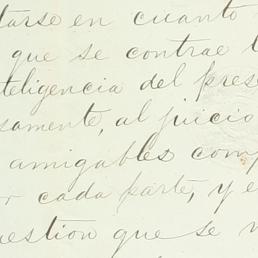 tarse en cuanto
que se contrae l
teligencia del pres
samente, al juicio
amigables comp
r cada parte, y e
uestion que se